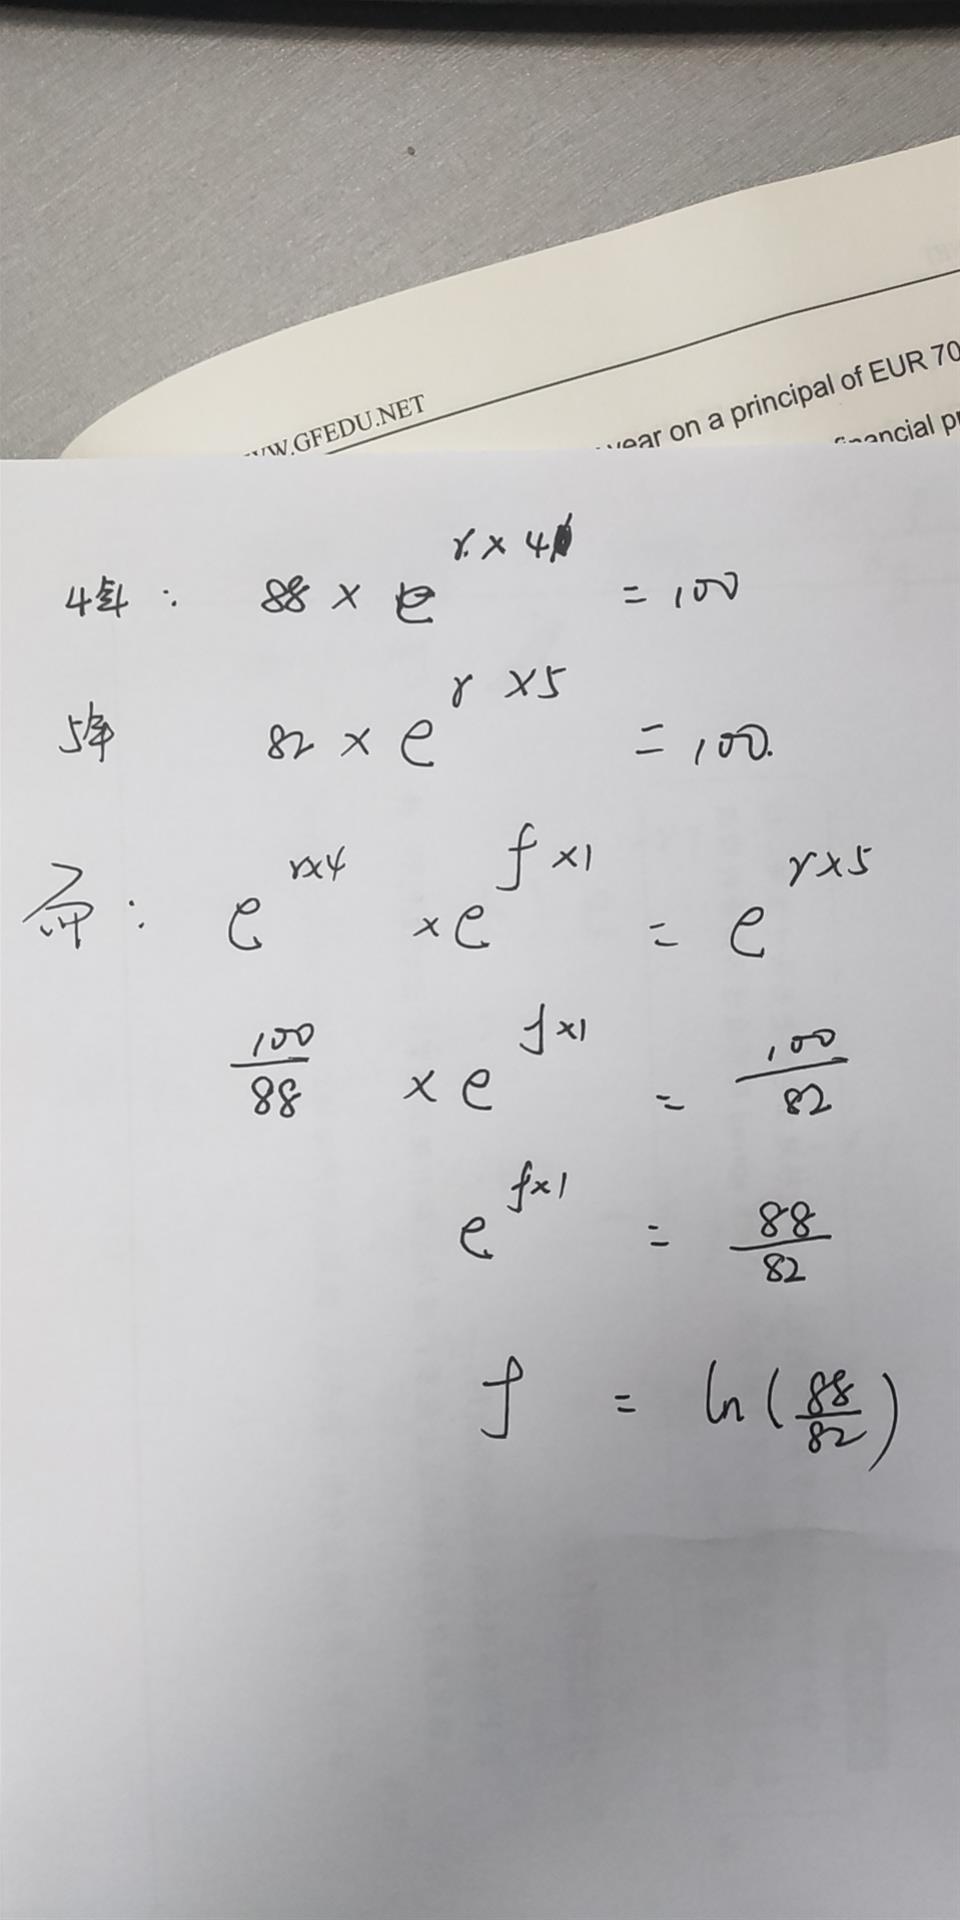 WW.GFEDU.NET
year on a principal of EUR 70
financial pr
4年: 88 × e^{r×4} = 100
5年 82 × e^{r×5} = 100.
令: e^{r×4} × e^{f×1} = e^{r×5}
100/88 × e^{f×1} = 100/82
e^{f×1} = 88/82
f = ln(88/82)